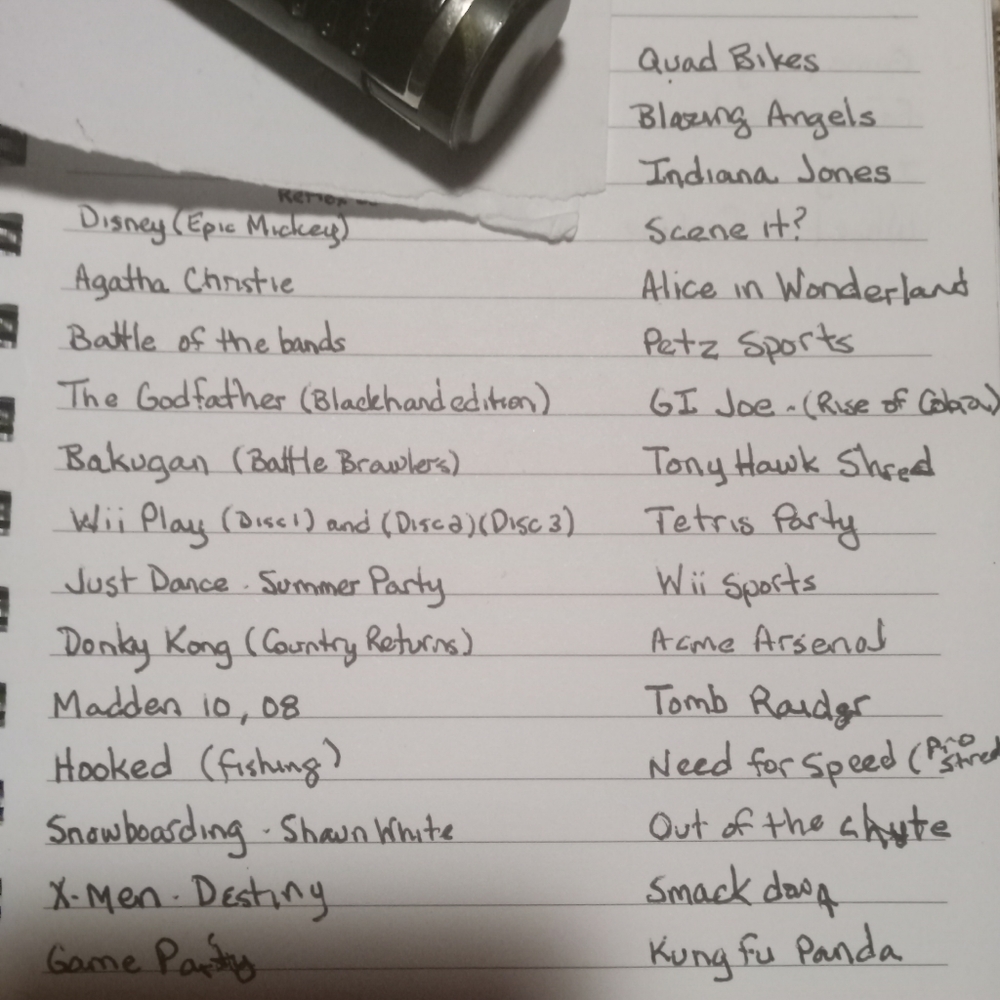 Disney (Epic Mickey)
Agatha Christie
Battle of the bands
The Godfather (Blackhand edition)
Bakugan (Battle Brawlers)
Wii Play (Disc 1) and (Disc 2) (Disc 3)
Just Dance . Summer Party
Donky Kong (Country Returns)
Madden 10, 08
Hooked (fishing)
Snowboarding . Shawn White
X-Men . Destiny
Game Party
Quad Bikes
Blazing Angels
Indiana Jones
Scene it?
Alice in Wonderland
Petz Sports
GI Joe - (Rise of Cobra)
Tony Hawk Shred
Tetris Party
Wii Sports
Acme Arsenal
Tomb Raider
Need for Speed (Pro Street
Out of the chute
Smack down
Kung fu Panda